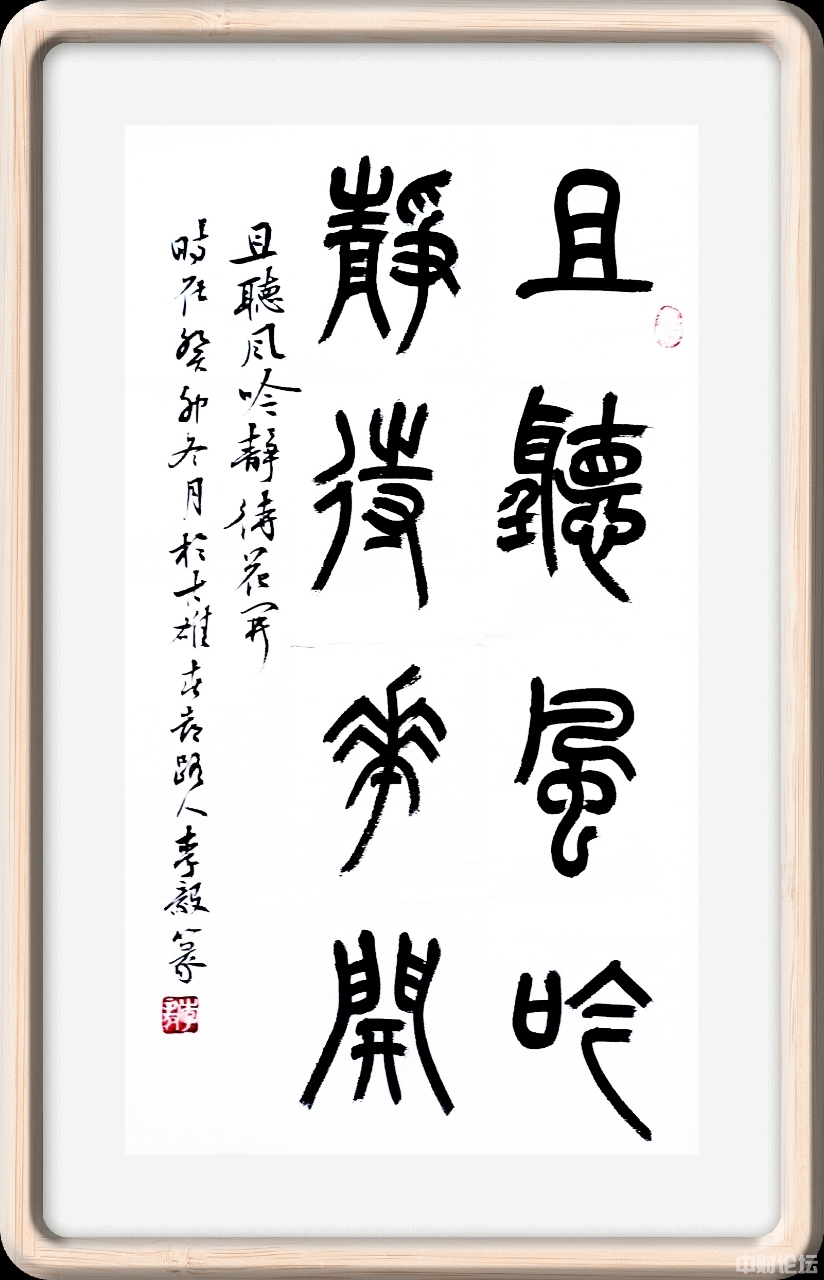 且聽風吟
靜待華開
且聽风吟靜待花开
時在癸卯冬月於古雄去亦路人李毅篆
中财论坛